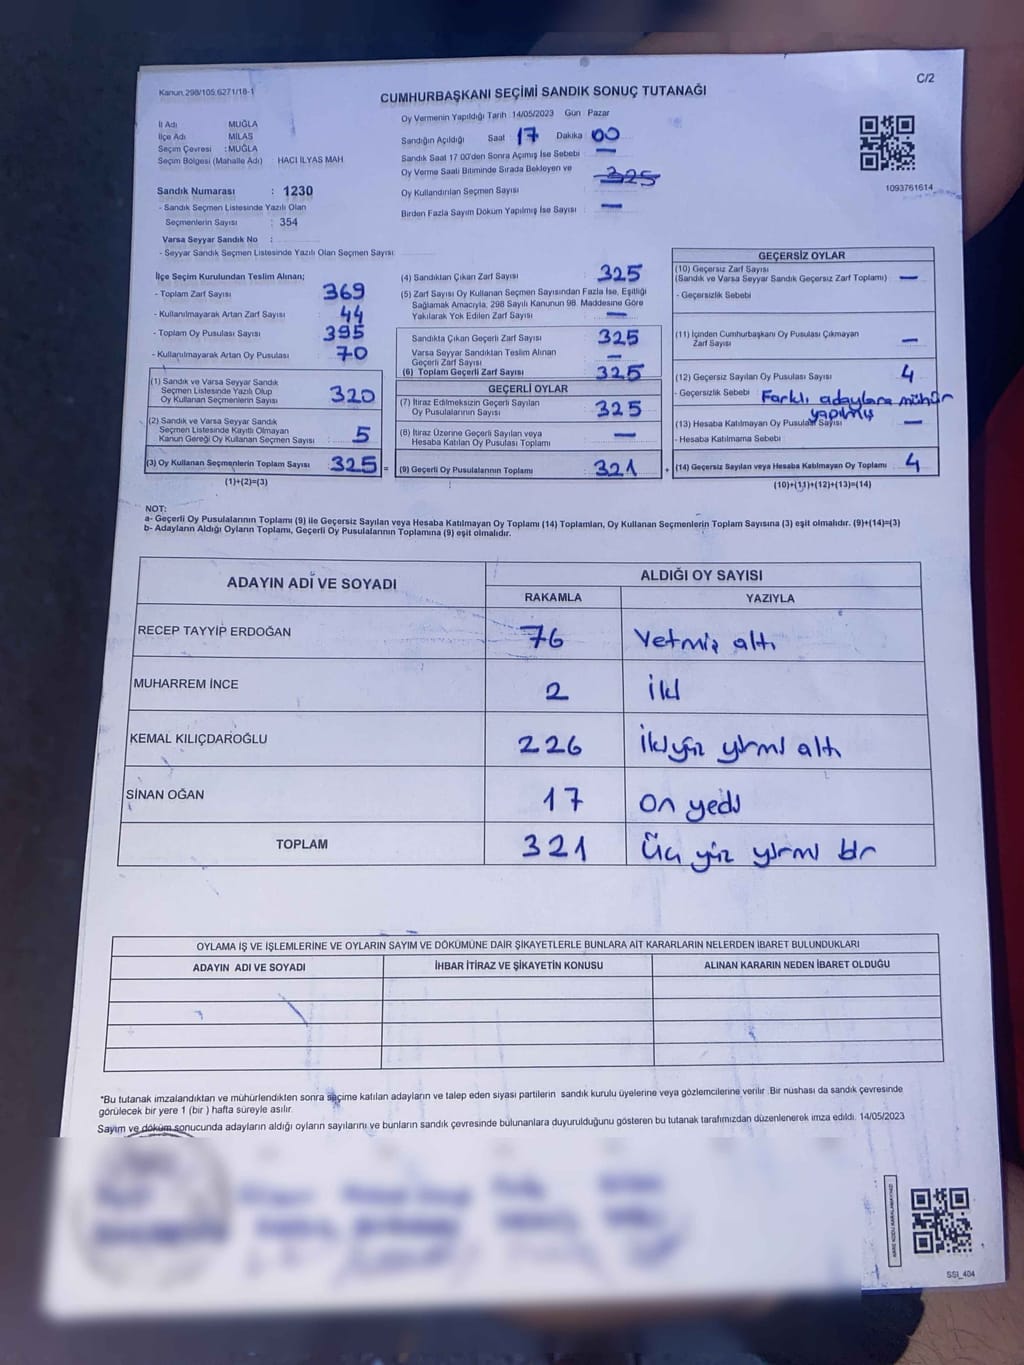 C/2
Kanun.298/105.6271/18-1
CUMHURBAŞKANI SEÇİMİ SANDIK SONUÇ TUTANAĞI
İl Adı MUĞLA
İlçe Adı MİLAS
Seçim Çevresi : MUĞLA
Seçim Bölgesi (Mahalle Adı) HACI İLYAS MAH.
Oy Vermenin Yapıldığı Tarih 14/05/2023 Gün Pazar
Sandığın Açıldığı Saat 17 Dakika 00
Sandık Saat 17 00'den Sonra Açımış İse Sebebi —
Oy Verme Saati Bitiminde Sırada Bekleyen ve
Oy Kullandırılan Seçmen Sayısı 325
Birden Fazla Sayım Döküm Yapılmış İse Sayısı —
1093761614
Sandık Numarası : 1230
- Sandık Seçmen Listesinde Yazılı Olan
Seçmenlerin Sayısı : 354
Varsa Seyyar Sandık No :
- Seyyar Sandık Seçmen Listesinde Yazılı Olan Seçmen Sayısı
İlçe Seçim Kurulundan Teslim Alınan;
- Toplam Zarf Sayısı 369
- Kullanılmayarak Artan Zarf Sayısı 44
- Toplam Oy Pusulası Sayısı 395
- Kullanılmayarak Artan Oy Pusulası 70
(1) Sandık ve Varsa Seyyar Sandık
Seçmen Listesinde Yazılı Olup
Oy Kullanan Seçmenlerin Sayısı 320
(2) Sandık ve Varsa Seyyar Sandık
Seçmen Listesinde Kayıtlı Olmayan
Kanun Gereği Oy Kullanan Seçmen Sayısı 5
(3) Oy Kullanan Seçmenlerin Toplam Sayısı 325 =
(1)+(2)=(3)
(4) Sandıktan Çıkan Zarf Sayısı 325
(5) Zarf Sayısı Oy Kullanan Seçmen Sayısından Fazla İse, Eşitliği
Sağlamak Amacıyla, 298 Sayılı Kanunun 98. Maddesine Göre
Yakılarak Yok Edilen Zarf Sayısı —
Sandıkta Çıkan Geçerli Zarf Sayısı 325
Varsa Seyyar Sandıktan Teslim Alınan
Geçerli Zarf Sayısı —
(6) Toplam Geçerli Zarf Sayısı 325
GEÇERLİ OYLAR
(7) İtiraz Edilmeksizin Geçerli Sayılan
Oy Pusulalarının Sayısı 325
(8) İtiraz Üzerine Geçerli Sayılan veya
Hesaba Katılan Oy Pusulası Toplamı —
(9) Geçerli Oy Pusulalarının Toplamı 321 +
GEÇERSİZ OYLAR
(10) Geçersiz Zarf Sayısı
(Sandık ve Varsa Seyyar Sandık Geçersiz Zarf Toplamı) —
- Geçersizlik Sebebi
(11) İçinden Cumhurbaşkanı Oy Pusulası Çıkmayan
Zarf Sayısı —
(12) Geçersiz Sayılan Oy Pusulası Sayısı 4
- Geçersizlik Sebebi Farklı adaylara mühür
yapılmış
(13) Hesaba Katılmayan Oy Pusulası Sayısı —
- Hesaba Katılmama Sebebi
(14) Geçersiz Sayılan veya Hesaba Katılmayan Oy Toplamı 4
(10)+(11)+(12)+(13)=(14)
NOT:
a- Geçerli Oy Pusulalarının Toplamı (9) ile Geçersiz Sayılan veya Hesaba Katılmayan Oy Toplamı (14) Toplamları, Oy Kullanan Seçmenlerin Toplam Sayısına (3) eşit olmalıdır. (9)+(14)=(3)
b- Adayların Aldığı Oyların Toplamı, Geçerli Oy Pusulalarının Toplamına (9) eşit olmalıdır.
ADAYIN ADI VE SOYADI ALDIĞI OY SAYISI
RAKAMLA YAZIYLA
RECEP TAYYİP ERDOĞAN 76 Yetmiş altı
MUHARREM İNCE 2 İki
KEMAL KILIÇDAROĞLU 226 İkiyüz yirmi altı
SİNAN OĞAN 17 On yedi
TOPLAM 321 Üç yüz yirmi bir
OYLAMA İŞ VE İŞLEMLERİNE VE OYLARIN SAYIM VE DÖKÜMÜNE DAİR ŞİKAYETLERLE BUNLARA AİT KARARLARIN NELERDEN İBARET BULUNDUKLARI
ADAYIN ADI VE SOYADI İHBAR İTİRAZ VE ŞİKAYETİN KONUSU ALINAN KARARIN NEDEN İBARET OLDUĞU
*Bu tutanak imzalandıktan ve mühürlendikten sonra seçime katılan adayların ve talep eden siyasi partilerin sandık kurulu üyelerine veya gözlemcilerine verilir. Bir nüshası da sandık çevresinde
görülecek bir yere 1 (bir ) hafta süreyle asılır.
Sayım ve döküm sonucunda adayların aldığı oyların sayılarını ve bunların sandık çevresinde bulunanlara duyurulduğunu gösteren bu tutanak tarafımızdan düzenlenerek imza edildi. 14/05/2023
KARE KODU KARALAMAYINIZ!
SSI_404